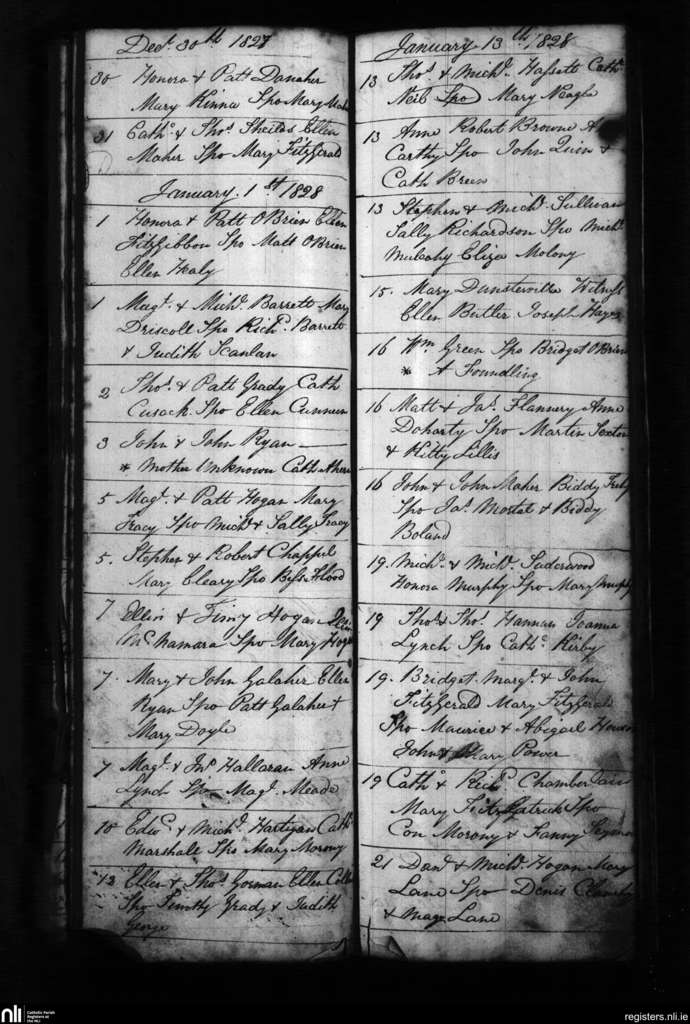 Decr. 30th 1827
30 Honora & Patt Danaher
Mary Kinna Spo Mary
31 Cathe. & Thos. Sheilds Ellen
Maher Spo Mary Fitzgerald
January. 1st 1828
1 Honora & Patt OBrien Ellen
Fitzgibbon Spo Matt OBrien
Ellen Healy
1 Magt. & Michl. Barrett Mary
Driscoll Spo Richd. Barrett
& Judith Scanlan
2 Thos. & Patt Grady Cath
Cusack Spo Ellen Cunneen
3 John & John Ryan
* Mother Unknown Cath Ahern
5 Magt. & Patt Hogan Mary
Tracy Spo Michl & Sally Tracy
5. Stephen & Robert Chappel
Mary Cleary Spo Bess Flood
7 Ellin & Timy Hogan Ellin
McNamara Spo Mary Hogan
7. Mary & John Galaher Ellen
Ryan Spo Patt Galaher &
Mary Doyle
7 Magt. & Jno. Halloran Anne
Lynch Spo Magt. Meade
10 Edwd. & Michl. Hartigan Cathe
Marshale Spo Mary Morony
12 Ellen & Thos. Gorman Ellen
Spo Timthy Grady & Judith
George
January 13th, 1828
13 Thos. & Michl. Hassett Cathe
Neil Spo Mary Neagle
13 Anne Robert Browne
Carthy Spo John Quin &
Cath Breen
13 Stephen & Michl. Sullivan
Sally Richardson Spo Michl
Mulcahy Eliza Molony
15. Mary Dunsterville Witness
Ellen Butler Joseph Hayes
16 Wm Green Spo Bridget OBrien
* A Foundling
16 Matt & Jas. Flannery Anne
Doharty Spo Martin Sexton
& Kitty Lillis
16 John & John Maher Biddy
Spo Jas. Mortel & Biddy
Boland
19. Michl. & Michl. Saderwood
Honora Murphy Spo Mary Murphy
19 Thos. & Thos. Hannan Joanna
Lynch Spo Cathe. Kirby
19. Bridget Margt. & John
Fitzgerald Mary Fitzgerald
Spo Maurice & Abigail
John & Mary Power
19 Cathe & Richd Chamberlain
Mary Fitzpatrick Spo
Con Morony & Fanny
21 Danl & Michl. Hogan Mary
Lane Spo Denis
& Magt Lane
nli
Catholic Parish
Registers at
the NLI
registers.nli.ie